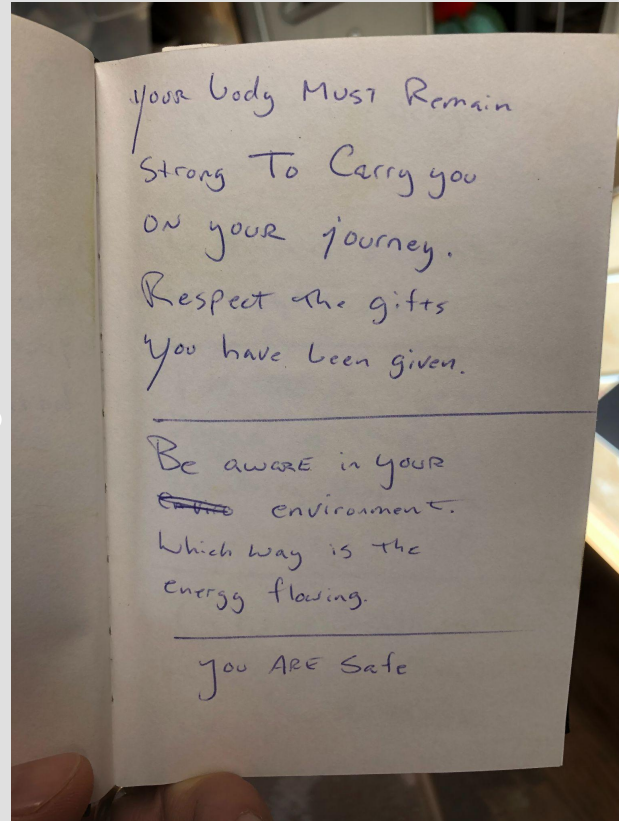 your body Must Remain
Strong To Carry you
ON your journey.
Respect the gifts
You have been given.
Be aware in your
environment.
Which way is the
energy flowing.
you ARE Safe